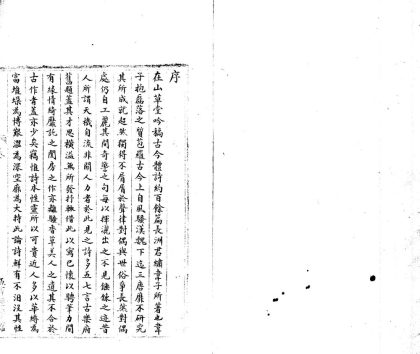 序
在山草堂吟稿古今體詩約百餘篇長洲君繡韋子所著也韋
子抱磊落之質苞蘊古今上自風騷漢魏下迄三唐靡不研究
其所成就超然獨得不屑屑於聲律對偶與世俗爭長然對偶
處仍自工麗其間奇警之句每以揮灑出之不見鍊飾之迹昔
人所謂天機自流非關人力者於此見之詩多五七言古樂府
舊題蓋其才思橫溢無所發抒輒借此以寫己懷以騁筆力間
有緣情綺靡託之閨房之作亦離騷香草美人之遺其不合於
古作者蓋亦少矣竊惟詩本性靈所以可貴近人多以華縟為
富堆垛為博艱澀為深空疎為大持此論詩鮮有不汨沒其性